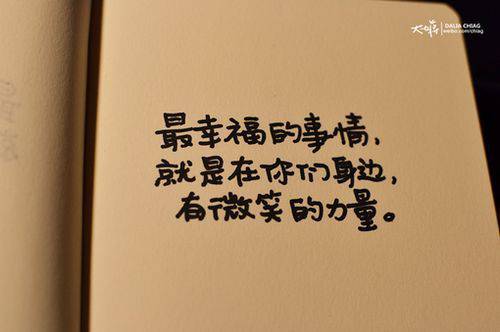 DALIA CHIAG
weibo.com/chiag
最幸福的事情，
就是在你们身边，
有微笑的力量。